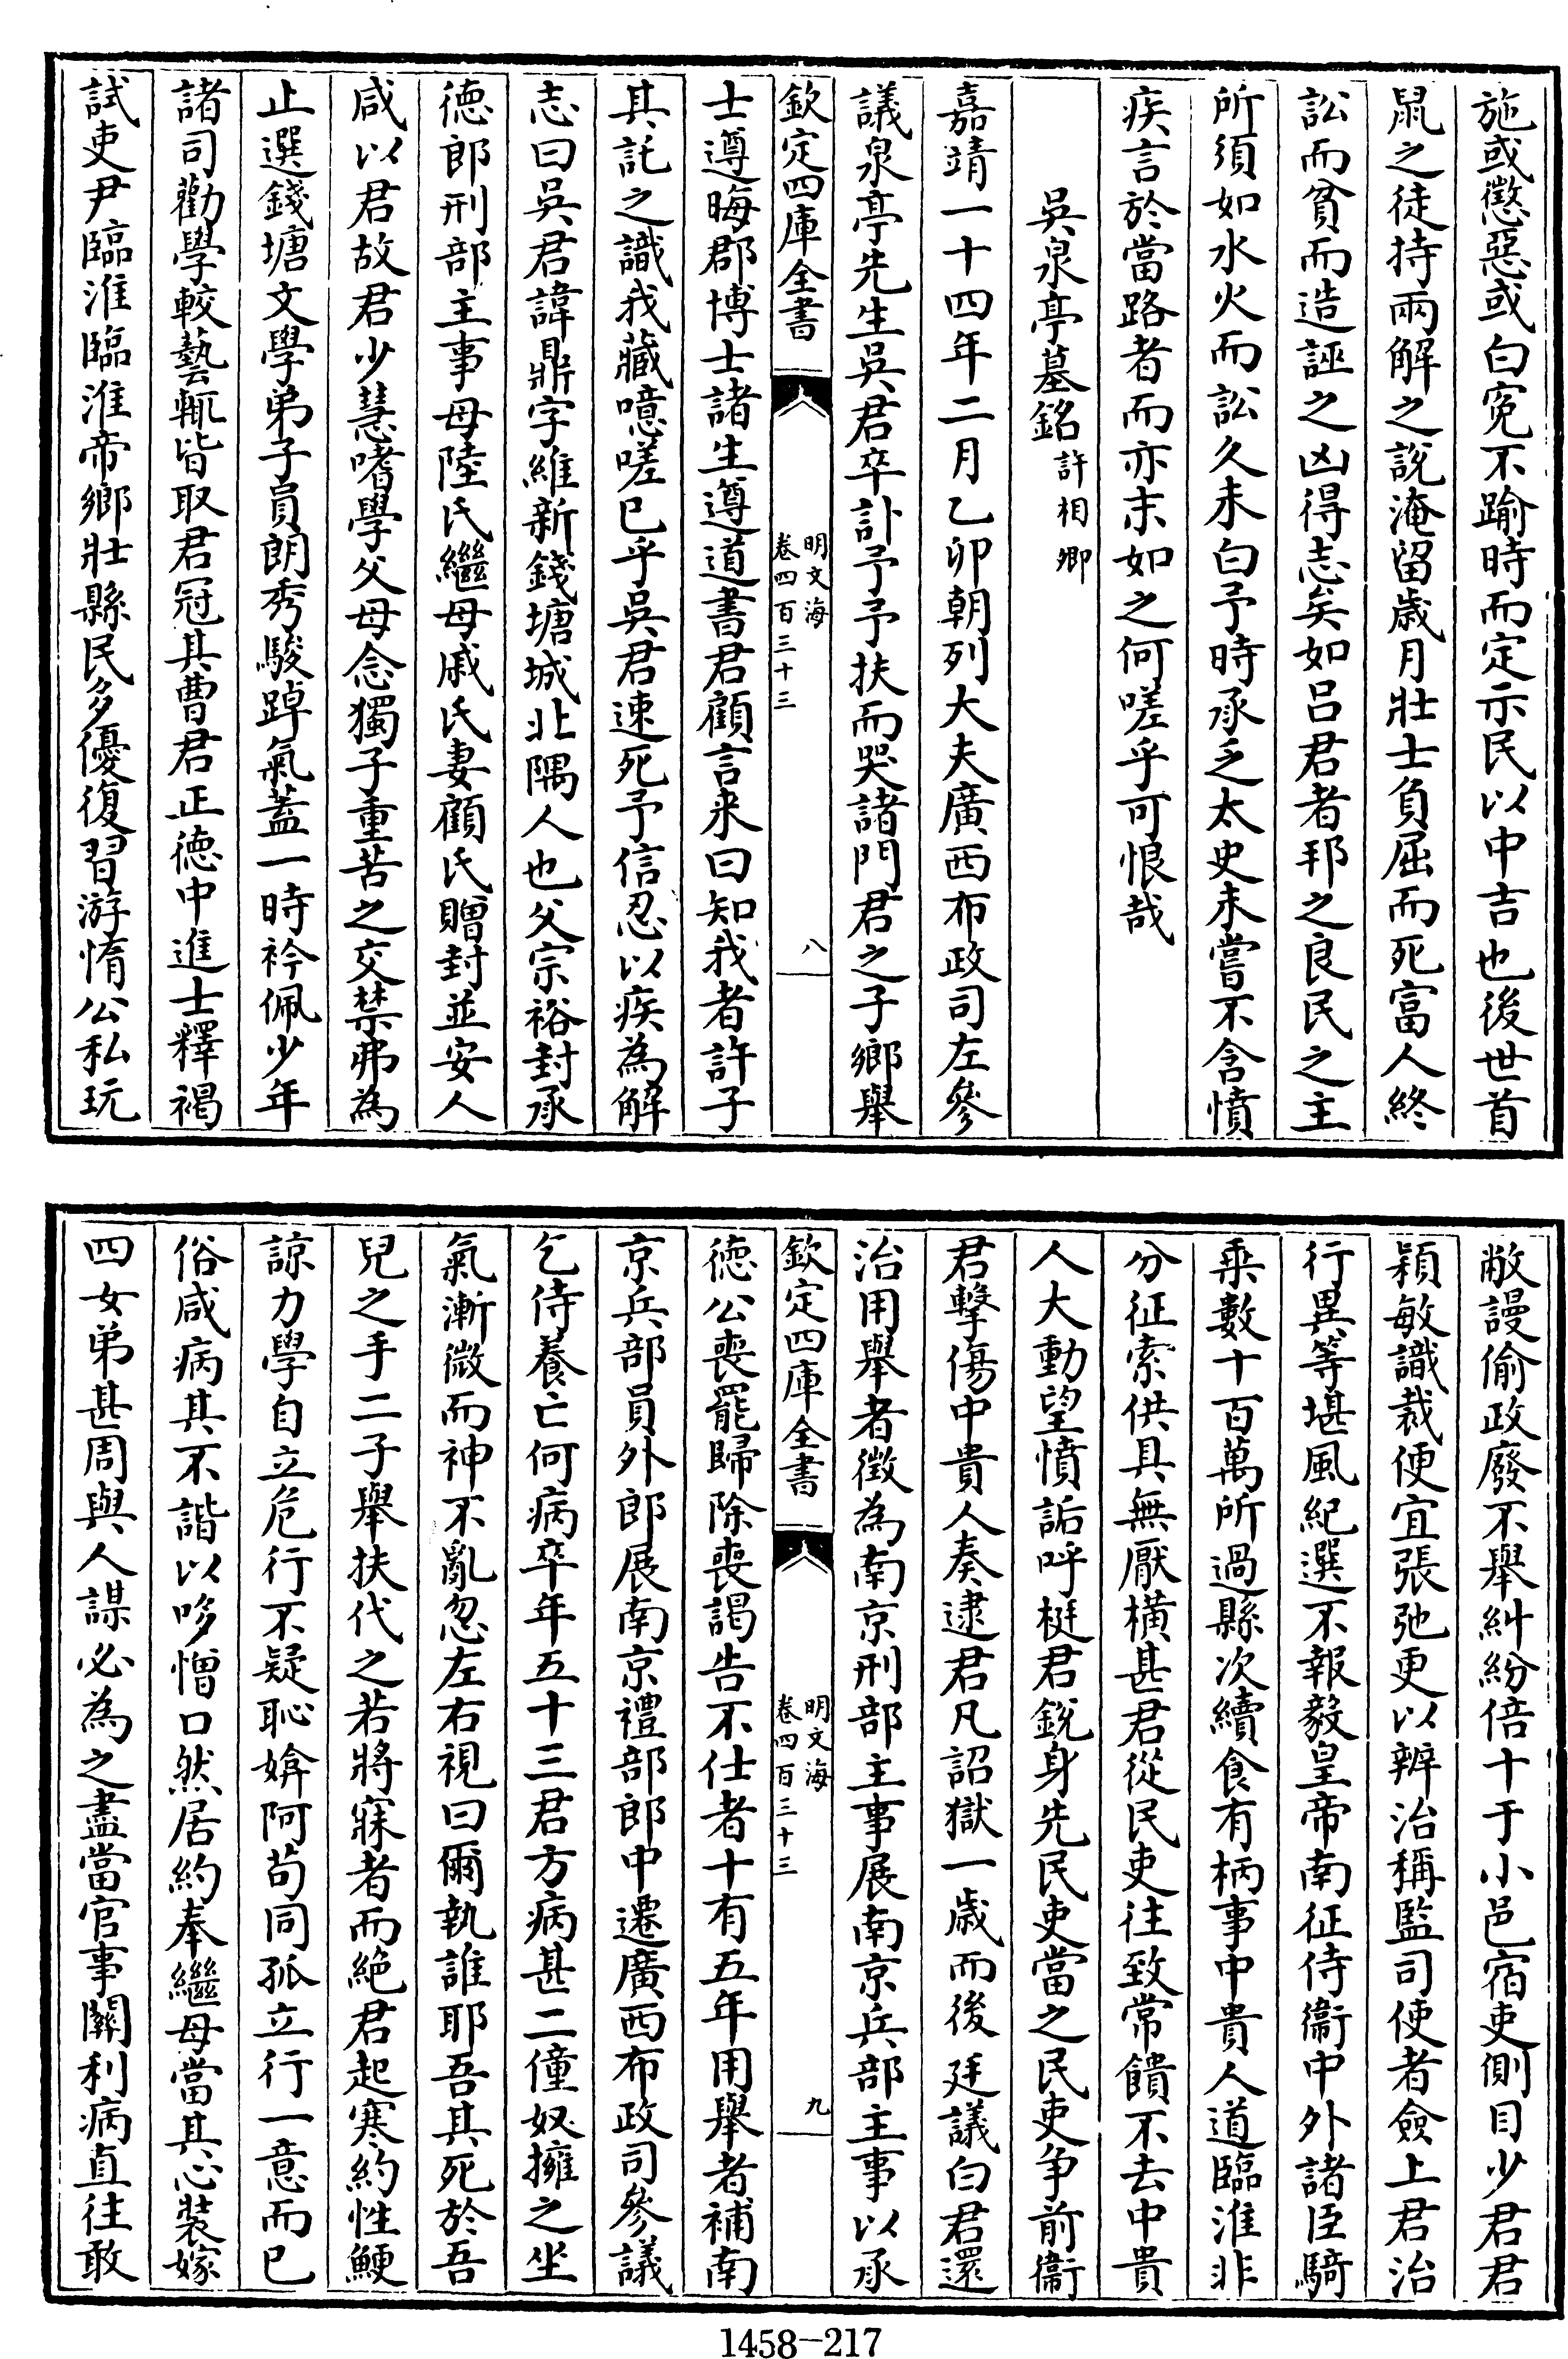 施或懲惡或白寃不踰時而定示民以中吉也後世首
鼠之徒持兩解之説淹留歲月壯士負屈而死富人終
訟而貧而造誣之凶得志矣如吕君者邦之良民之主
所須如水火而訟久未白予時承乏太史未嘗不含憤
疾言於當路者而亦末如之何嗟乎可恨哉
吳泉亭墓銘許相卿
嘉靖一十四年二月乙卯朝列大夫廣西布政司左參
議泉亭先生吳君卒訃予予扶而哭諸門君之子鄉舉
欽定四庫全書
明文海
卷四百三十三
八
士遵晦郡博士諸生遵道書君顧言来曰知我者許子
其託之識我藏噫嗟已乎吳君速死予信忍以疾為解
志曰吳君諱鼎字維新錢塘城北隅人也父宗裕封承
徳郎刑部主事母陸氏繼母戚氏妻顧氏贈封並安人
咸以君故君少慧嗜學父母念獨子重苦之交禁弗為
止選錢塘文學弟子員朗秀駿踔氣蓋一時衿佩少年
諸司勸學較藝輒皆取君冠其曹君正徳中進士釋褐
試吏尹臨淮臨淮帝鄉壯縣民多優復習游惰公私玩
敝謾偷政廢不舉糾紛倍十于小邑宿吏側目少君君
穎敏識裁便宜張弛更以辨治稱監司使者僉上君治
行異等堪風紀選不報毅皇帝南征侍衞中外諸臣騎
乘數十百萬所過縣次續食有柄事中貴人道臨淮非
分征索供具無厭橫甚君從民吏往致常饋不去中貴
人大動望憤詬呼梃君銳身先民吏當之民吏争前衞
君擊傷中貴人奏逮君凡詔獄一歲而後廷議白君還
治用舉者徴為南京刑部主事展南京兵部主事以承
欽定四庫全書
明文海
卷四百三十三
九
徳公喪罷歸除喪謁告不仕者十有五年用舉者補南
京兵部員外郎展南京禮部郎中遷廣西布政司參議
乞侍養亡何病卒年五十三君方病甚二僮奴擁之坐
氣漸微而神不亂忽左右視曰爾執誰耶吾其死於吾
兒之手二子舉扶代之若將寐者而絶君起寒約性鯁
諒力學自立危行不疑恥媕阿苟同孤立行一意而已
俗咸病其不諧以哆憎口然居約奉繼母當其心裝嫁
四女弟甚周與人謀必為之盡當官事關利病直往敢
1458-217